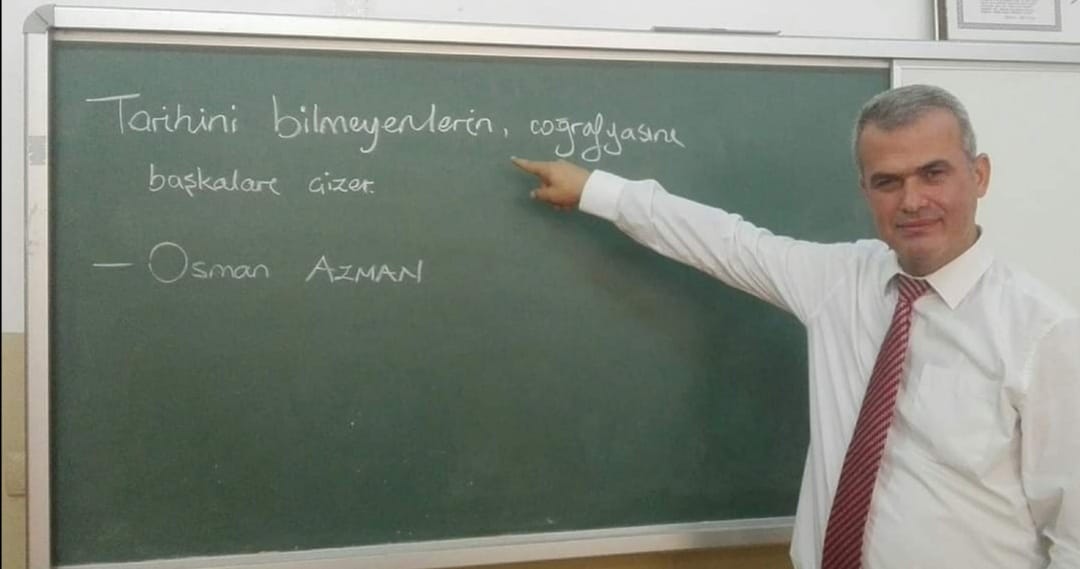 Tarihini bilmeyenlerin, coğrafyasını
başkaları çizer.
- Osman AZMAN